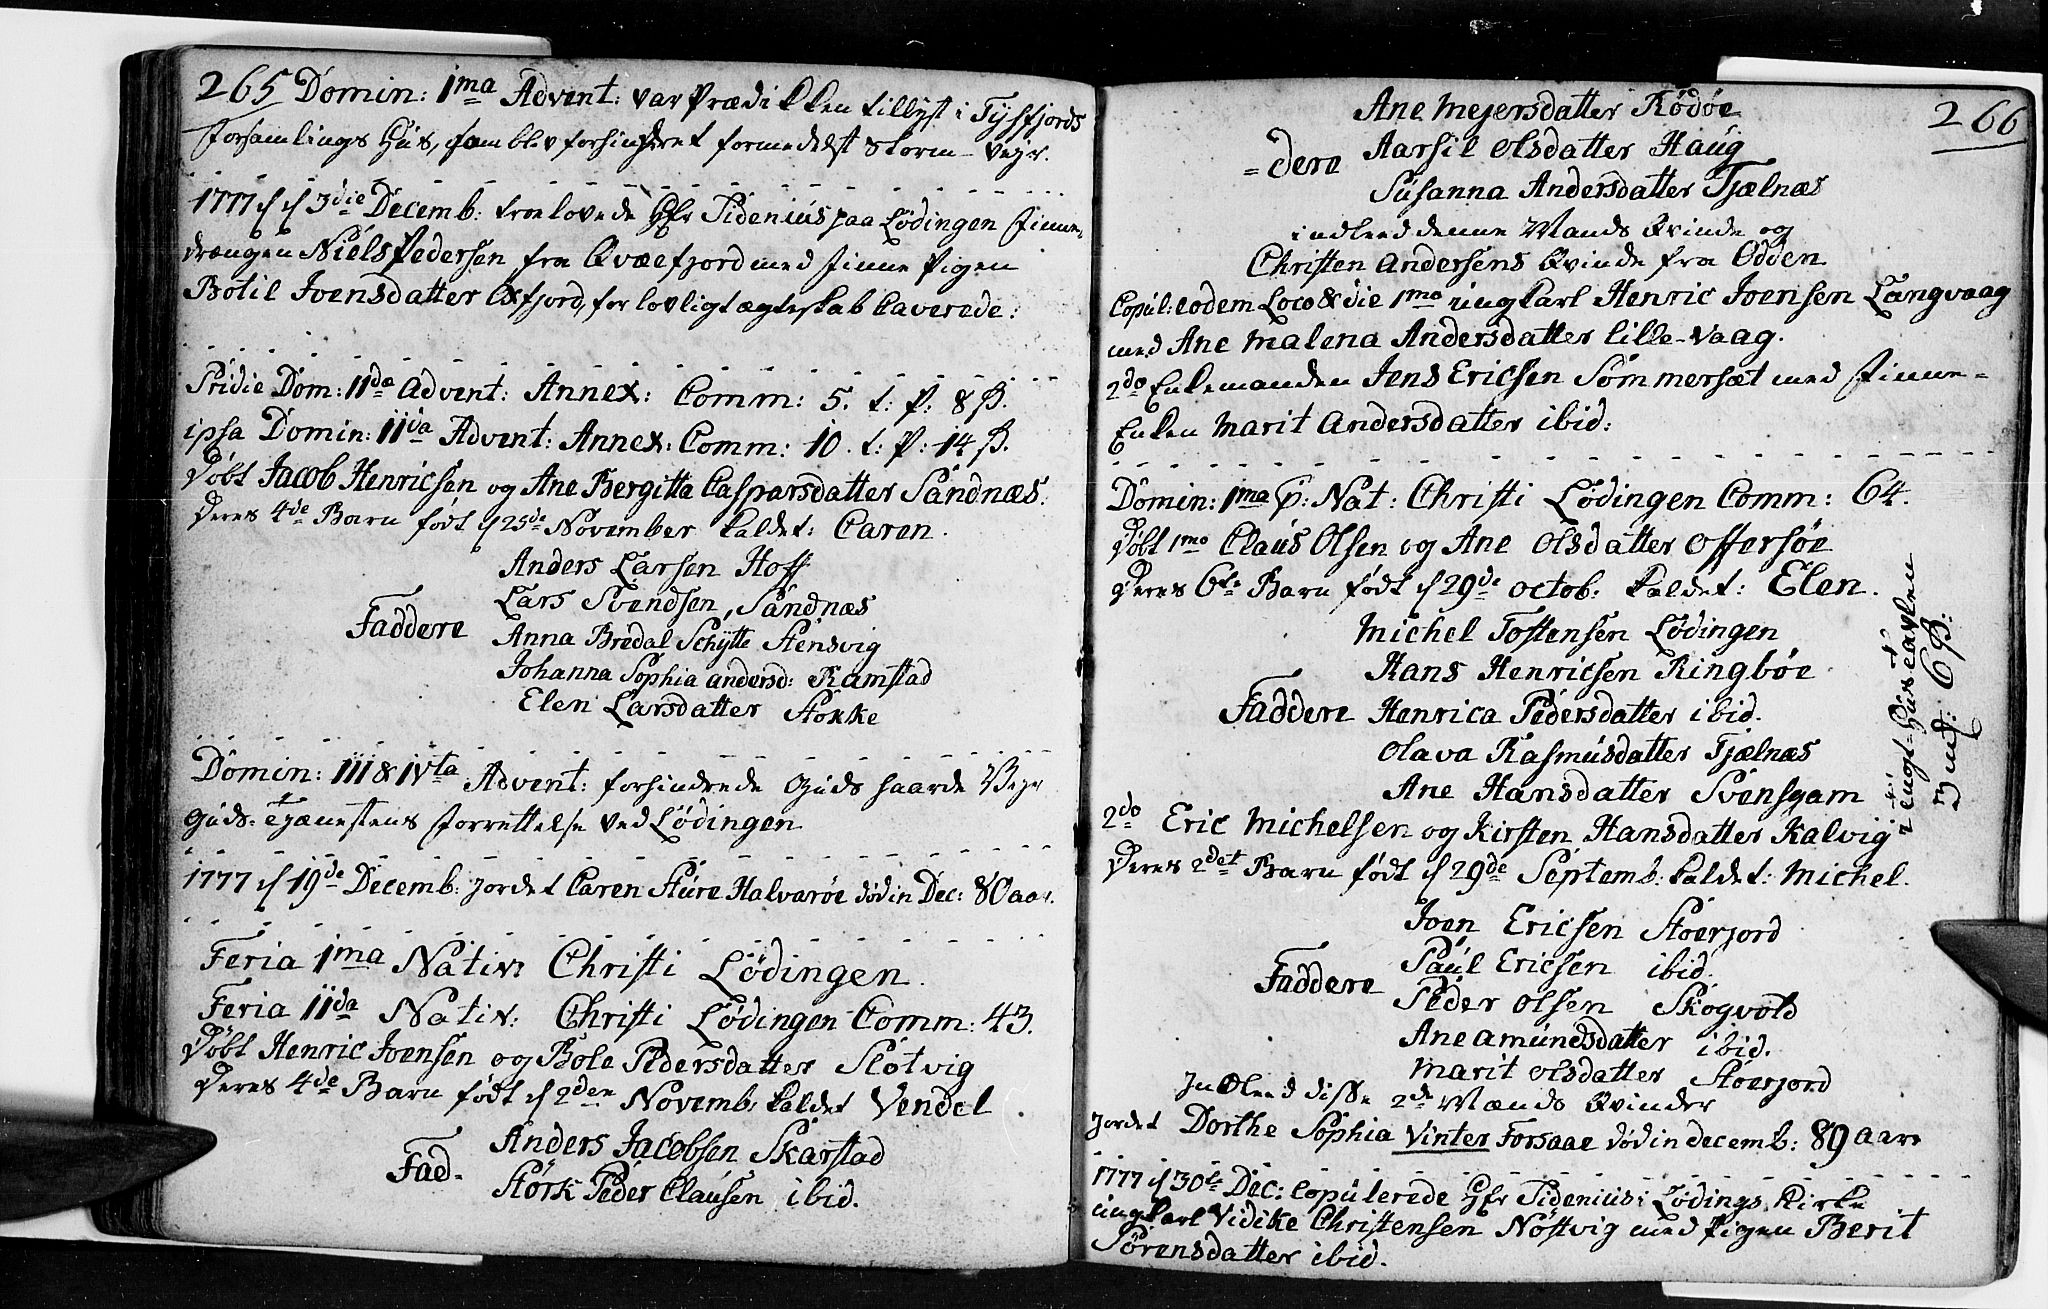 265 Domin: 1ma Advent: var Prædikken tillyst i Tysfjords
Forsamlings Hus, som blev forhindret formedelst Storm-Vejr.
1777 d 3die Decemb: trolovede Hr Sidenius paa Lødingen Finne-
drængen Niels Pedersen fra Qvæfjord med Finne Pigen
Botil Joensdatter Oxfjord, for lovligt ægteskab Caverede:
Pridie Dom: 11da Advent: Annex: Comm: 5. t: P: 8 ß.
ipsa Domin: 11da Advent: Annex: Comm: 10. t: P: 14 ß.
Døbt Jacob Henricsen og Ane Bergitta Casparsdatter Sandnæs.
Deres 4de Barn født d 25de November kaldet: Caren.
Anders Larsen Hoff
Lars Svendsen, Sandnæs
Faddere Anna Bredal Schytte Stensvig
Johanna Sophia andersd: Ramstad
Elen Larsdatter Stokke
Domin: III & IVta Advent: forhindrede Guds haarde Vejr
Guds-Tjænestens Forrettelse ved Lødingen
1777 d 19de Decemb: jordet Caren Sture Halvarøe død in Dec: 80 aar.
Feria 1ma Nativ: Christi Lødingen.
Feria 11da Nativ: Christi Lødingen Comm: 43.
Døbt Henric Joensen og Bole Pedersdatter Slotvig
Deres 4de Barn født d 2den Novemb: kaldet Vendel
Anders Jacobsen Skarstad
Fad. Stork Peder Clausen ibid.
266
Ane Mejersdatter Rødøe
-dere Aarsil Olsdatter Haug
Susanna Andersdatter Tjælnæs
indleed denne Mands Qvinde og
Christen Andersens Qvinde fra Odden
Copul: eodem Loco & die 1mo ungkarl Henric Joensen Langvaag
med Ane Malena Andersdatter Lille-Vaag.
2do Enkemanden Jens Ericsen Sommersæt med Finne-
Enken Marit Andersdatter ibid:
Domin: 1ma p: Nat: Christi Lødingen Comm: 64.
Døbt 1mo Claus Olsen og Ane Olsdatter Offersøe
Deres 6te Barn født d 29de octob: kaldet: Elen.
Michel Tostensen Lødingen
Hans Henricsen Ringbøe
Faddere Henrica Pedersdatter ibid.
Olava Rasmusdatter Tjælnæs
Ane Hansdatter Svensgam
2do Eric Michelsen og Kirsten Hansdatter Kalvig
Deres 2det Barn født d 29de Septemb: kaldet: Michel.
Joen Ericsen Stoerjord
Paul Ericsen ibid.
Faddere Peder Olsen Skogvold
Ane Amundsdatter ibid.
Marit Olsdatter Stoerjord
Indleed disse 2de Mænds Qvinder
Jordet Dorthe Sophia Vinter Forsaae død in decemb: 89 aar
1777 d 30te Dec: Copulerede Hr Sidenius i Lødings Kirke
ungkarl Vidike Christensen Nøstvig med Pigen Berit
Sørensdatter ibid.
6 ß: